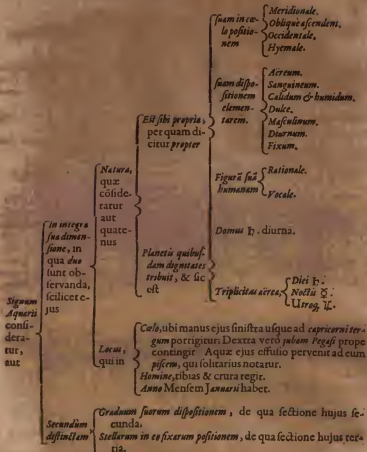 Signum
Aquarii
consi-
dera-
tur,
aut
In integra
sua dimen-
sione, in
qua duo
sunt ob-
servanda,
scilicet e-
jus
Natura,
quæ
cōside-
ratur
aut
quate-
nus
Est sibi propria,
per quam di-
citur propter
suam in cœ-
lo positio-
nem
Meridionale.
Oblique ascendens.
Occidentale.
Hyemale.
suam dispo-
sitionem
elemen-
tarem.
Aereum.
Sanguineum.
Calidum & humidum.
Dulce.
Masculinum.
Diurnum.
Fixum.
Figurā suā
humanam
Rationale.
Vocale.
Planetis quibus-
dam dignitates
tribuit, & sic
est
Domus ♄. diurna.
Triplicitas aërea,
Diei ♄.
Noctis ☿.
Utroq; ♃.
Locus,
qui in
Cœlo, ubi manus ejus sinistra usque ad capricorni ter-
gum porrigitur: Dextra verò jubam Pegasi prope
contingit Aquæ ejus effusio pervenit ad eum
piscem, qui solitarius notatur.
Homine, tibias & crura regit.
Anno Mensem Januarii habet.
Secundùm
distinctam
Graduum suorum dispositionem, de qua sectione hujus se-
cunda.
Stellarum in eo fixarum positionem, de qua sectione hujus ter-
tia.